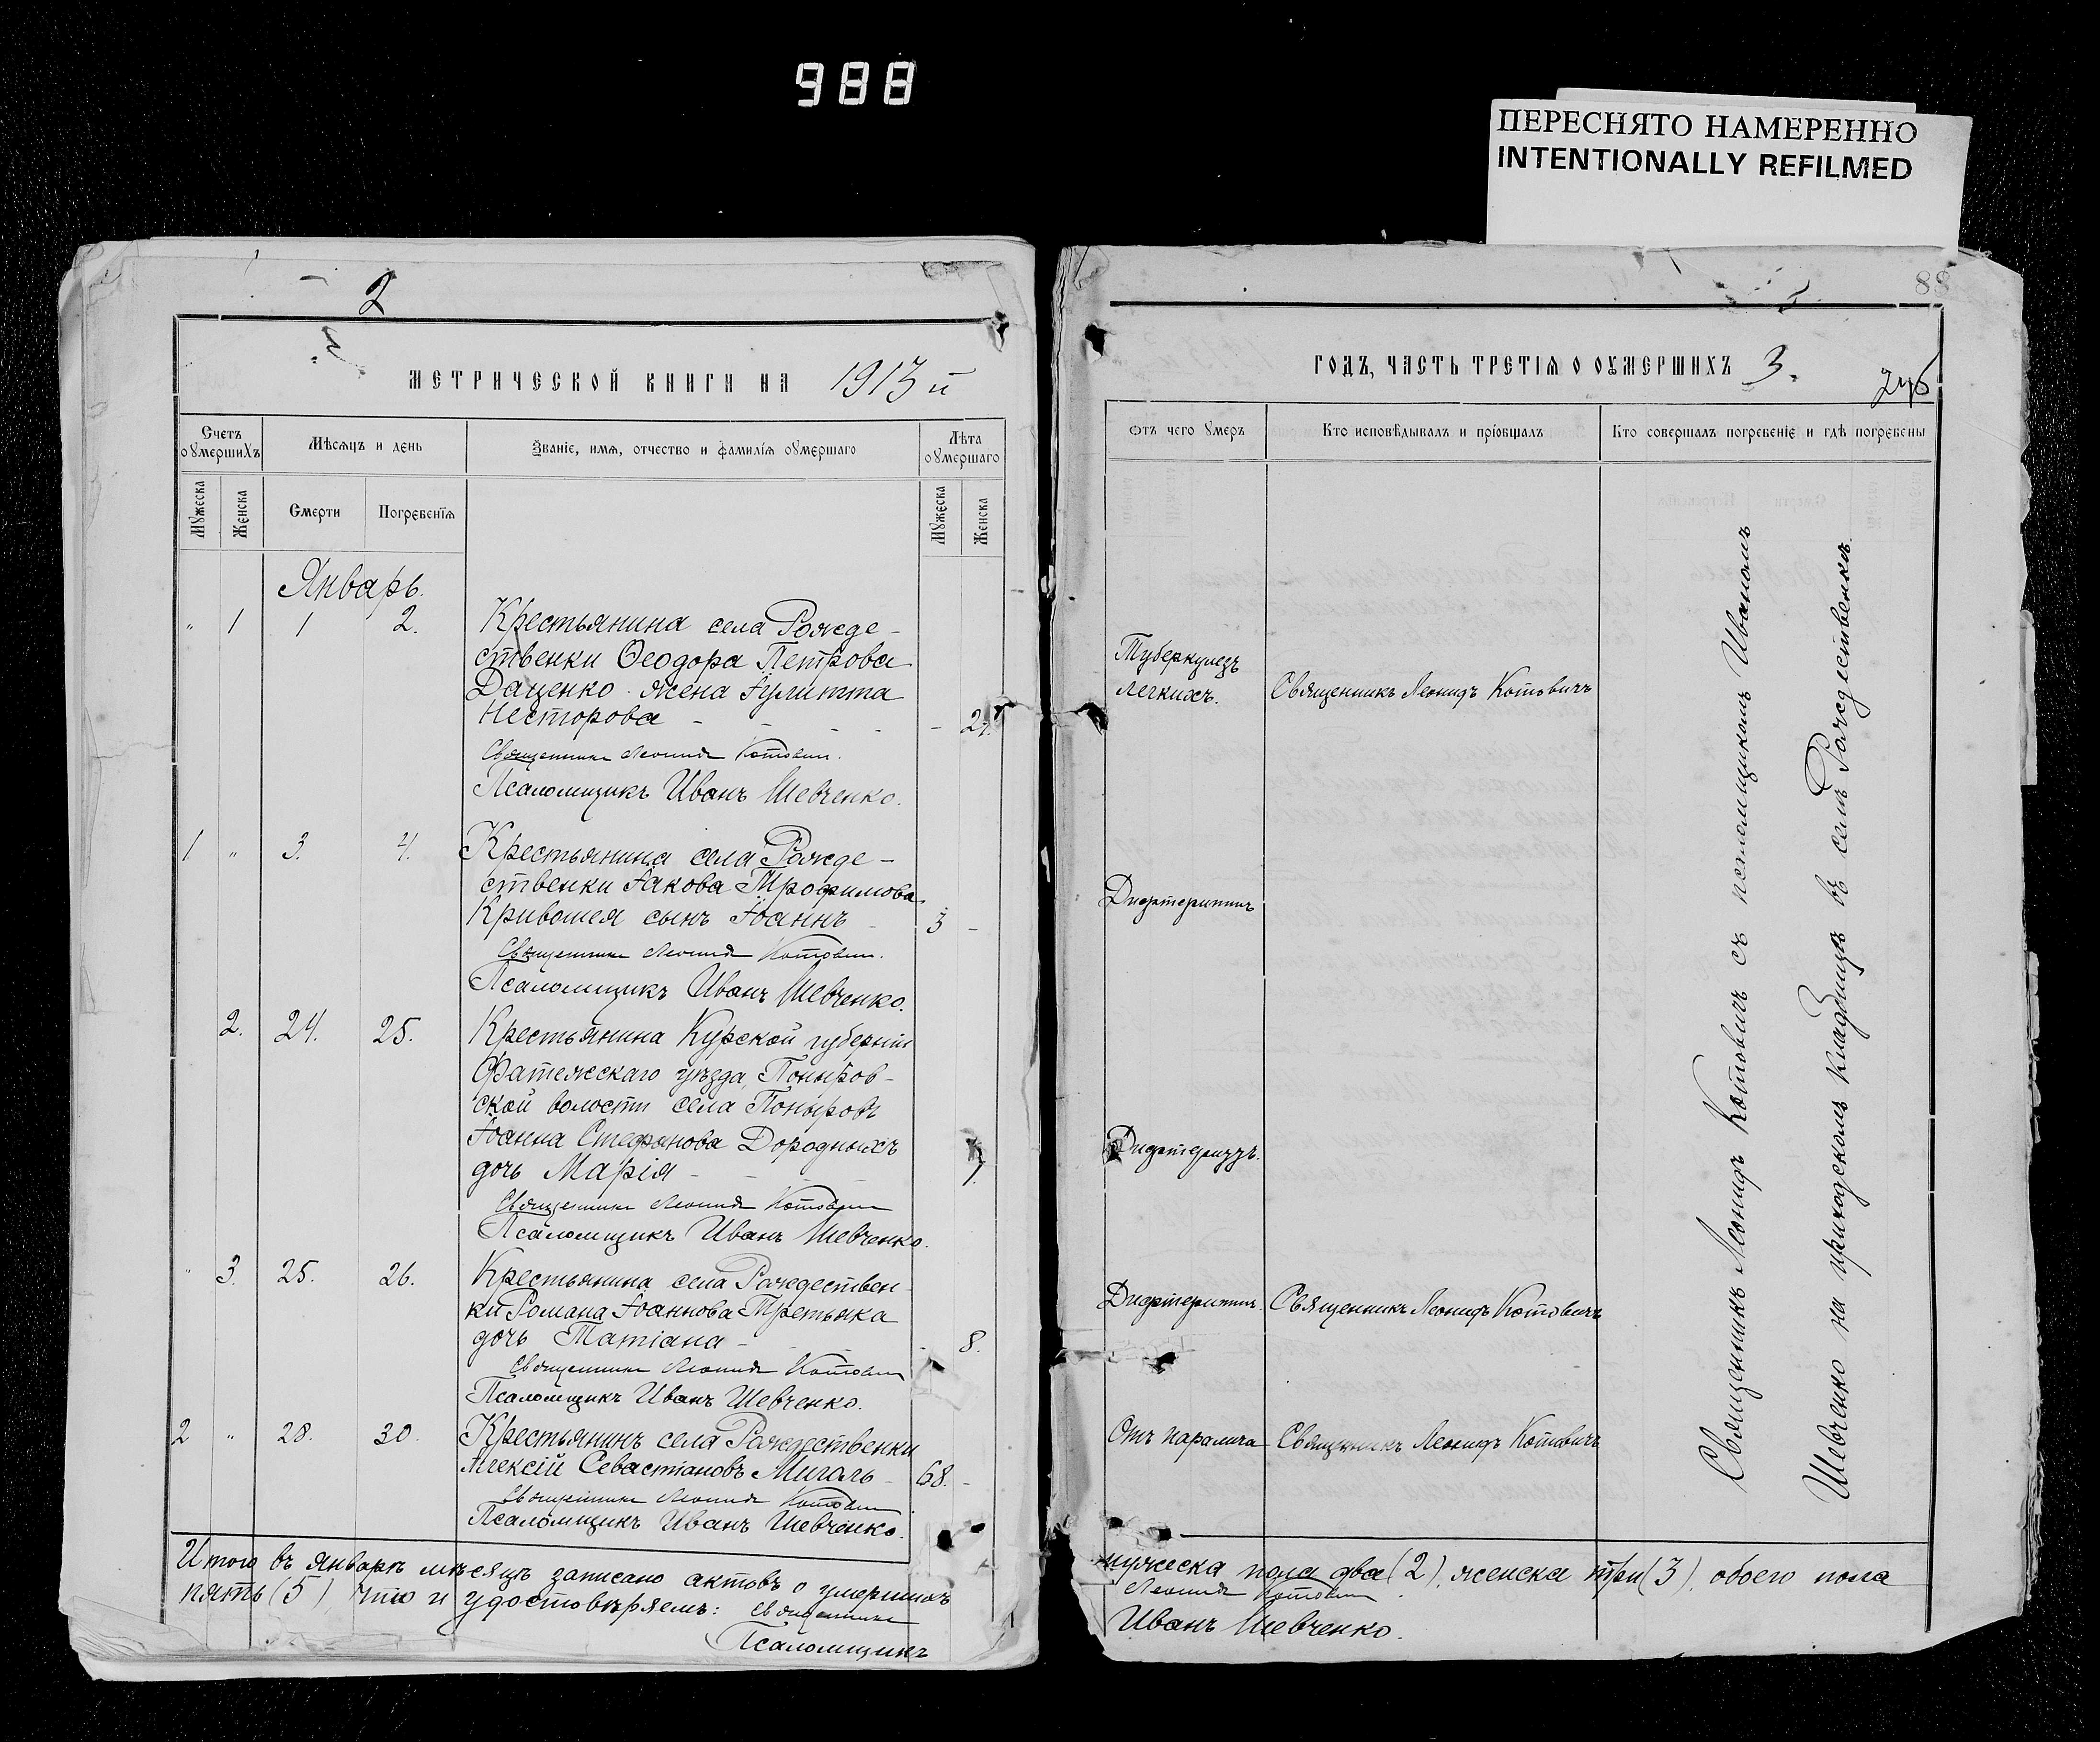 988
ПЕРЕСНЯТО НАМЕРЕННО
INTENTIONALLY REFILMED
2
МЕТРИЧЕСКОЙ КНИГИ НА 1913 й
Счетъ оумершихъ
Мѣсяцъ и день
Званіе, имя, отчество и фамилія оумершаго
Лѣта оумершаго
Мужеска
Женска
Смерти
Погребенія
Мужеска
Женска
Январь.
" 1 1 2. Крестьянина села Рожде-
ственки Ѳеодора Петрова
Даценко жена Іулитта
Несторова - - - - -
Священникъ Леонидъ Котовичъ.
Псаломщикъ Иванъ Шевченко.
1 " 3. 4. Крестьянина села Рожде-
ственки Іакова Трофимова
Кривошея сынъ Іоаннъ - 3 -
Священникъ Леонидъ Котовичъ.
Псаломщикъ Иванъ Шевченко.
2. 24. 25. Крестьянина Курской губерніи
Фатежскаго уѣзда, Поныров-
ской волости села Поныровъ
Іоанна Стефанова Дородныхъ
дочь Марія - - - -
Священникъ Леонидъ Котовичъ
Псаломщикъ Иванъ Шевченко.
" 3. 25. 26. Крестьянина села Рождествен-
ки Романа Іоаннова Третьяка
дочь Татіана - - - - 8.
Священникъ Леонидъ Котовичъ
Псаломщикъ Иванъ Шевченко.
2 " 28. 30. Крестьянинъ села Рождественки
Алексій Севастіановъ Мигаль - 68. -
Священникъ Леонидъ Котовичъ
Псаломщикъ Иванъ Шевченко.
Итого въ январѣ мѣсяцѣ записано актовъ о умершихъ
пять (5) что и удостовѣряемъ: Священникъ
Псаломщикъ
88
ГОДЪ, ЧАСТЬ ТРЕТІЯ О ОУМЕРШИХЪ 3.
Отъ чего умеръ
Кто исповѣдывалъ и пріобщалъ
Кто совершалъ погребеніе и гдѣ погребены
Туберкулезъ
легкихъ. Священникъ Леонидъ Котовичъ
Дифтеритъ
Дифтеритъ.
Дифтеритъ. Священникъ Леонидъ Котовичъ
Отъ паралича Священникъ Леонидъ Котовичъ
Священникъ Леонидъ Котовичъ съ псаломщикомъ Иваномъ
Шевченко на приходскомъ кладбищѣ въ селѣ Рождественкѣ.
мужеска пола два (2), женска три (3), обоего пола
Леонидъ Котовичъ.
Иванъ Шевченко.